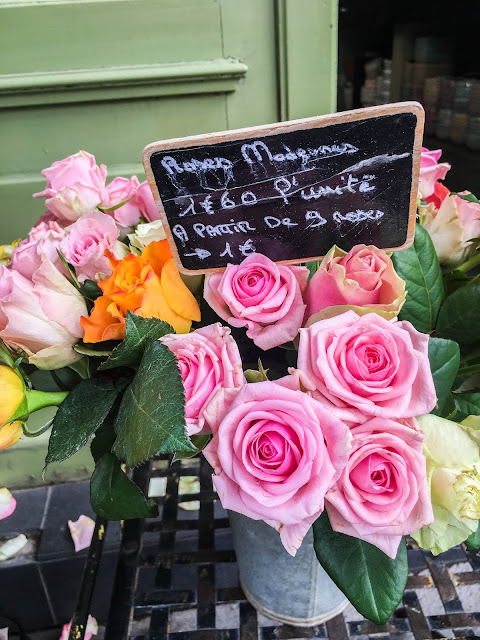 Roses Moyennes
1€60 P' unité
A PARTIR DE 9 Roses
→ 1€